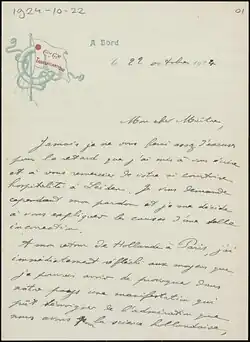 1924-10-22
01
A Bord
le 22 octobre 192
Mon cher Maître,
Jamais je ne saurai assez m'excuser
pour le retard que j'ai mis à vous écrire
et à vous remercier de votre si
hospitalité à Leiden. Je vous demande
cependant mon pardon et je me décide
à vous expliquer la cause d'une telle
incorrection.
A mon retour de Hollande à Paris, j'ai
immédiatement réfléchi aux moyens que
je pouvais avoir de provoquer dans
notre pays une manifestation qui
pût témoigner de l'admiration que
nous avons la science hollandaise,